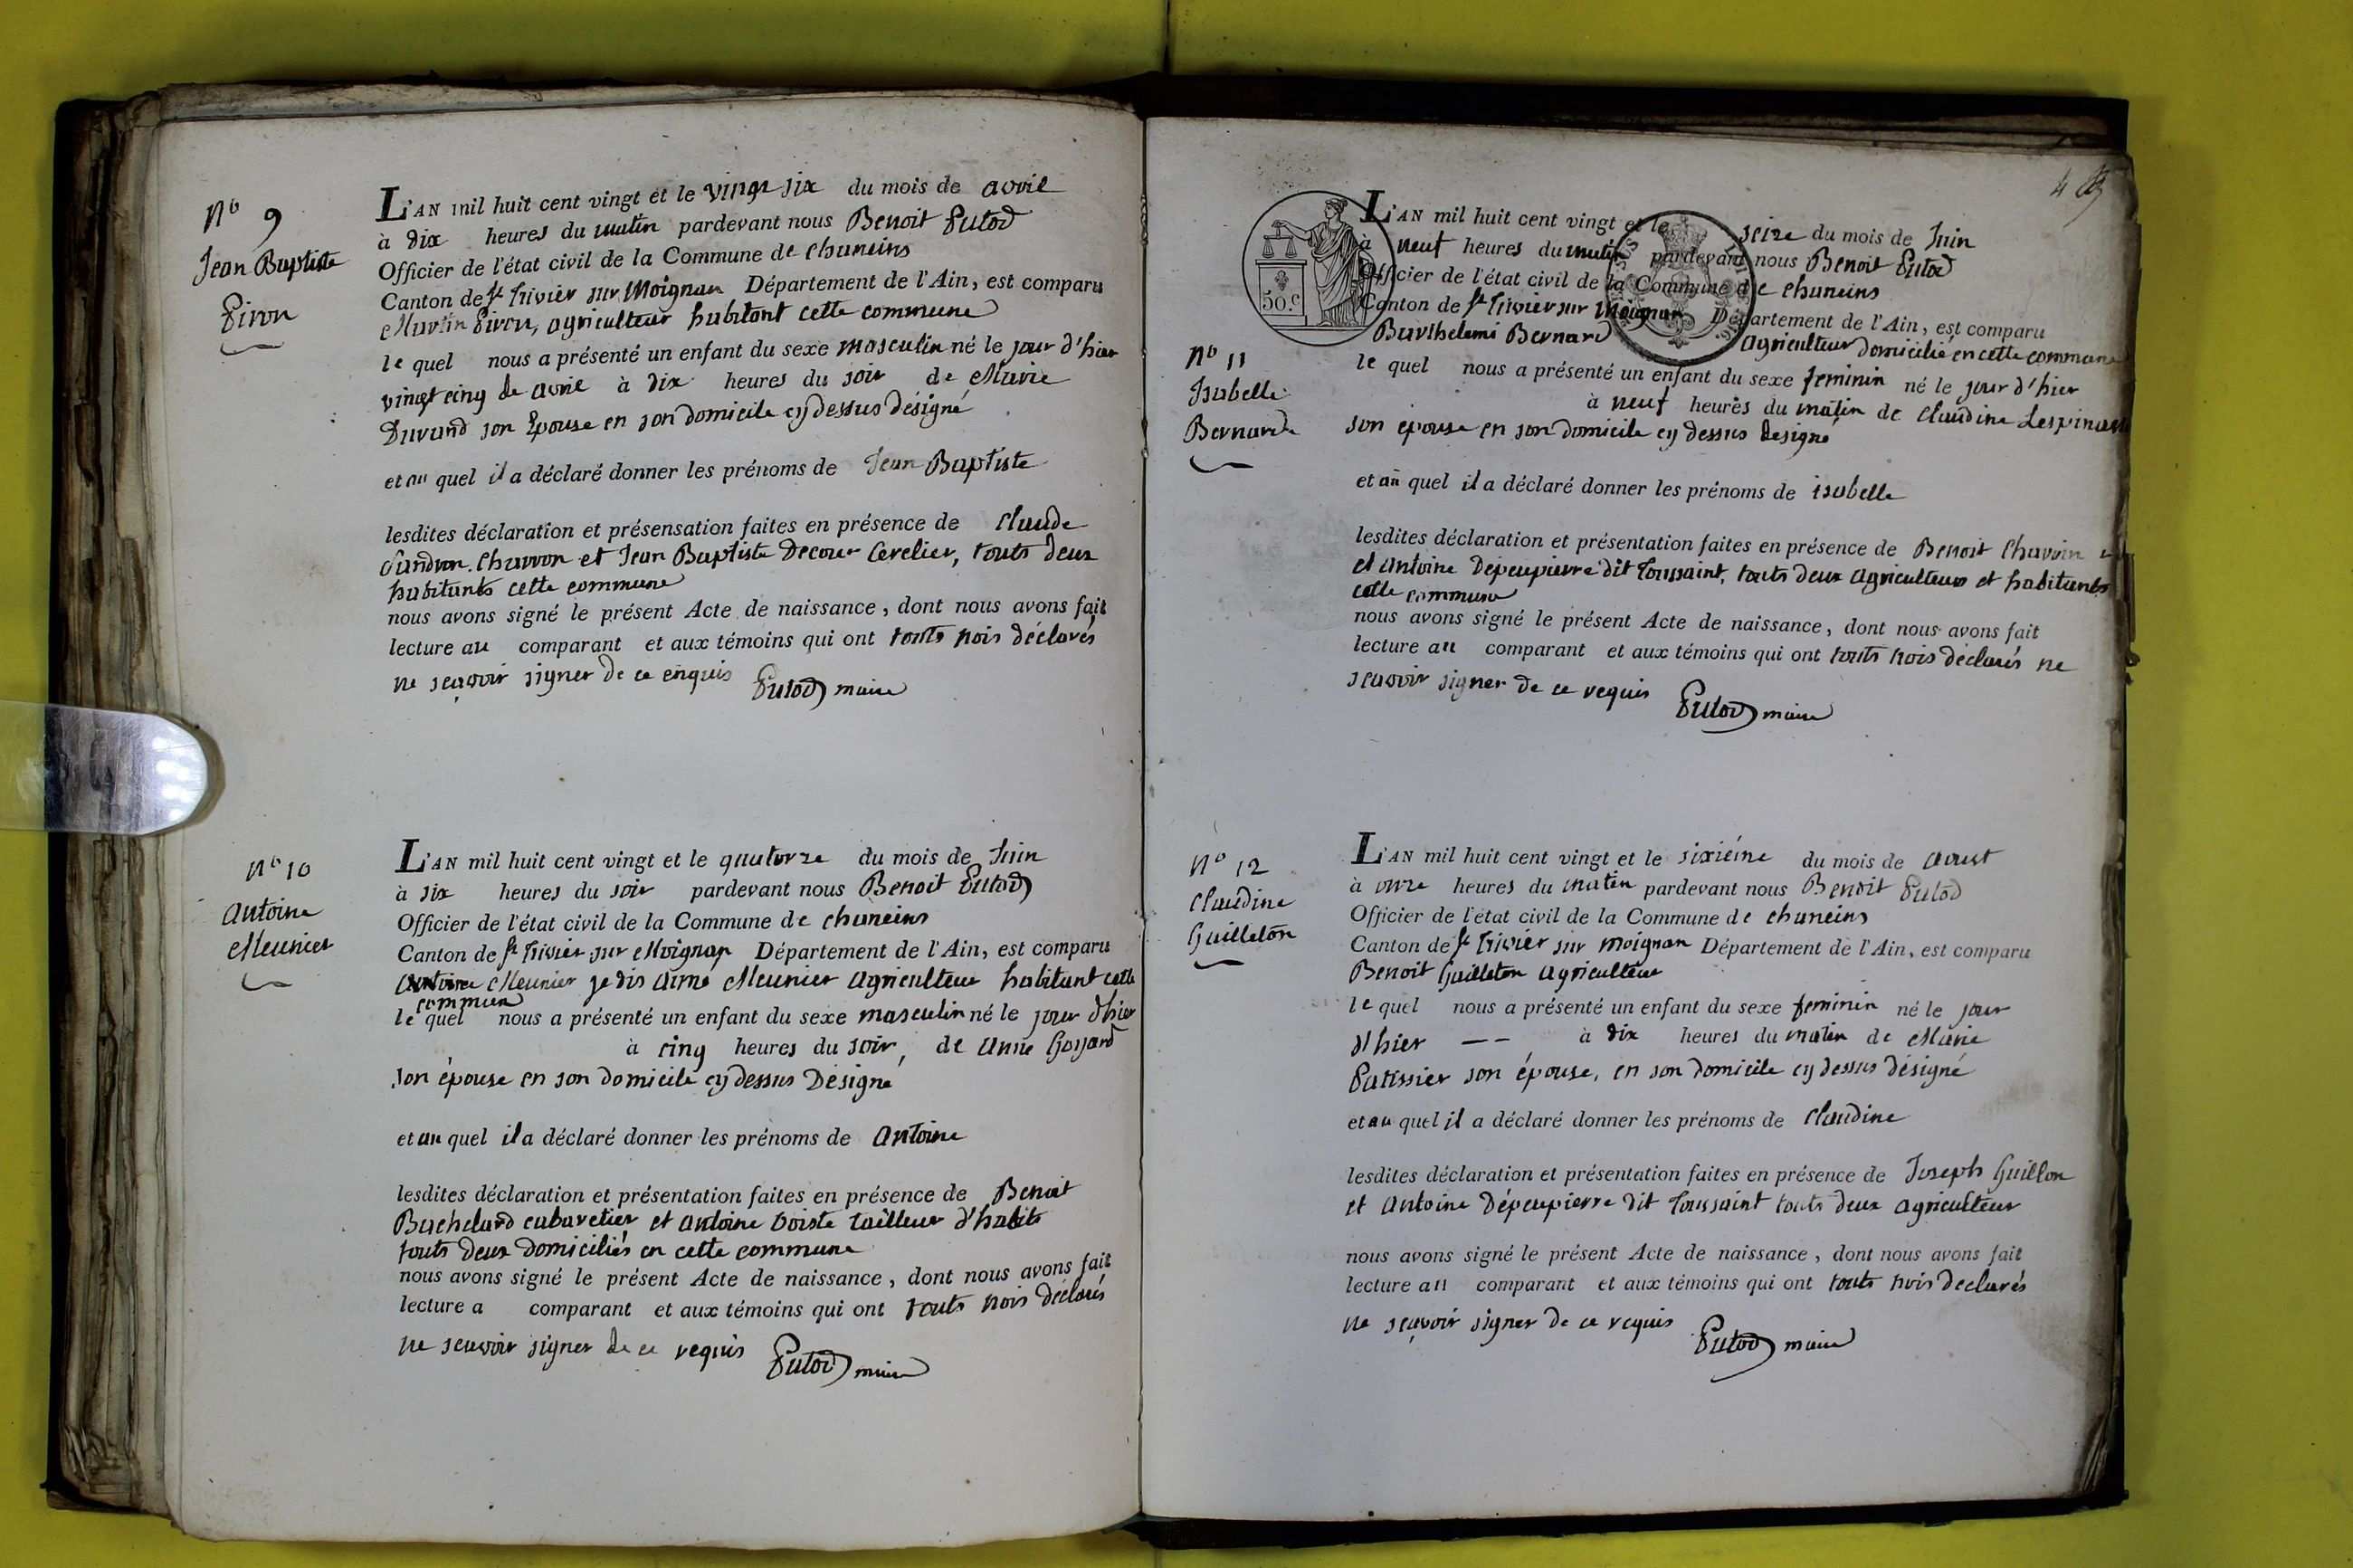 N° 9
Jean Baptiste
Piron
L'AN mil huit cent vingt et le vingt six du mois de avril
à dix heures du matin pardevant nous Benoit Putod
Officier de l'état civil de la Commune de chaneins
Canton de St Trivier sur Moignan Département de l'Ain, est comparu
Martin Piron, agriculteur habitant cette commune
le quel nous a présenté un enfant du sexe masculin né le jour d'hier
vingt cinq de avril à dix heures du soir de Marie
Durand son Epouse en son domicile cy dessus désigné
et au quel il a déclaré donner les prénoms de Jean Baptiste
lesdites déclaration et présensation faites en présence de Claude
charron et Jean Baptiste Decour, touts deux
habitants cette commune
nous avons signé le présent Acte de naissance, dont nous avons fait
lecture au comparant et aux témoins qui ont touts trois déclarés
ne sçavoir signer de ce enquis Putod maire
N° 10
Antoine
Meunier
L'AN mil huit cent vingt et le quatorze du mois de Juin
à six heures du soir pardevant nous Benoit Putod
Officier de l'état civil de la Commune de chaneins
Canton de St Trivier sur Moignan Département de l'Ain, est comparu
Antoine Meunier je dis aimé Meunier agriculteur habitant cette
commune
le quel nous a présenté un enfant du sexe masculin né le jour d'hier
à cinq heures du soir, de anne Goyard
son épouse en son domicile cy dessus Désigné
et au quel il a déclaré donner les prénoms de antoine
lesdites déclaration et présentation faites en présence de Benoit
Bachelard cabaretier et antoine voiste tailleur d'habits
touts deux domiciliés en cette commune
nous avons signé le présent Acte de naissance, dont nous avons fait
lecture a comparant et aux témoins qui ont touts trois déclarés
ne scavoir signer de ce requis Putod maire
4
50.c
L'AN mil huit cent vingt et le seize du mois de Juin
à neuf heures du matin pardevant nous Benoit Putod
Officier de l'état civil de la Commune de chaneins
Canton de St Trivier sur Moignan Département de l'Ain, est comparu
Barthelemi Bernard agriculteur domicilié en cette commune
N° 11
Isabelle
Bernarde
le quel nous a présenté un enfant du sexe feminin né le jour d'hier
à neuf heures du matin de Claudine Lespinasse
son épouse en son domicile cy dessus designé
et au quel il a déclaré donner les prénoms de isabelle
lesdites déclaration et présentation faites en présence de Benoit Chavoin
et Antoine Dépeupierre dit Toussaint, touts deux agriculteurs et habitants
cette commune
nous avons signé le présent Acte de naissance, dont nous avons fait
lecture au comparant et aux témoins qui ont touts trois déclarés ne
scavoir signer de ce requis Putod maire
N° 12
Claudine
Guilleton
L'AN mil huit cent vingt et le sixiéme du mois de aoust
à onze heures du matin pardevant nous Benoit Putod
Officier de l'état civil de la Commune de chaneins
Canton de St Trivier sur moignan Département de l'Ain, est comparu
Benoit Guilleton agriculteur
le quel nous a présenté un enfant du sexe feminin né le jour
d'hier -- à dix heures du matin de Marie
Patissier son épouse, en son domicile cy dessus désigné
et au quel il a déclaré donner les prénoms de Claudine
lesdites déclaration et présentation faites en présence de Joseph Guillon
et Antoine Dépeupierre dit Toussaint touts deux agriculteur
nous avons signé le présent Acte de naissance, dont nous avons fait
lecture au comparant et aux témoins qui ont touts trois declarés
ne sçavoir signer de ce requis Putod maire